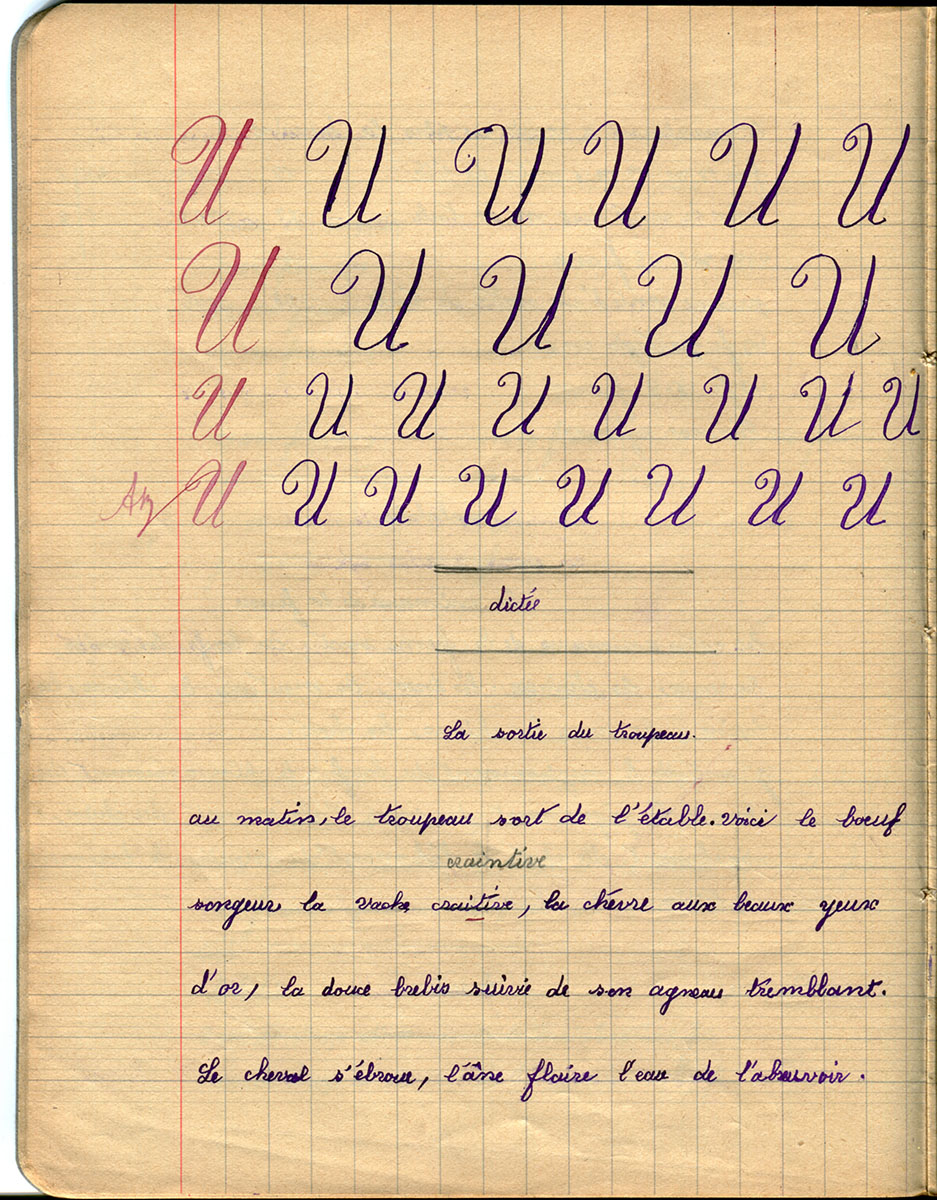 U U U U U U
U U U U U
U U U U U U U U
U U U U U U U U
dictée
La sortie du troupeau.
au matin, le troupeau sort de l'étable. voici le bœuf
craintive
songeur la vache craitive, la chèvre aux beaux yeux
d'or, la douce brebis suivie de son agneau tremblant.
Le cheval s'ébroue, l'âne flaire l'eau de l'abreuvoir.